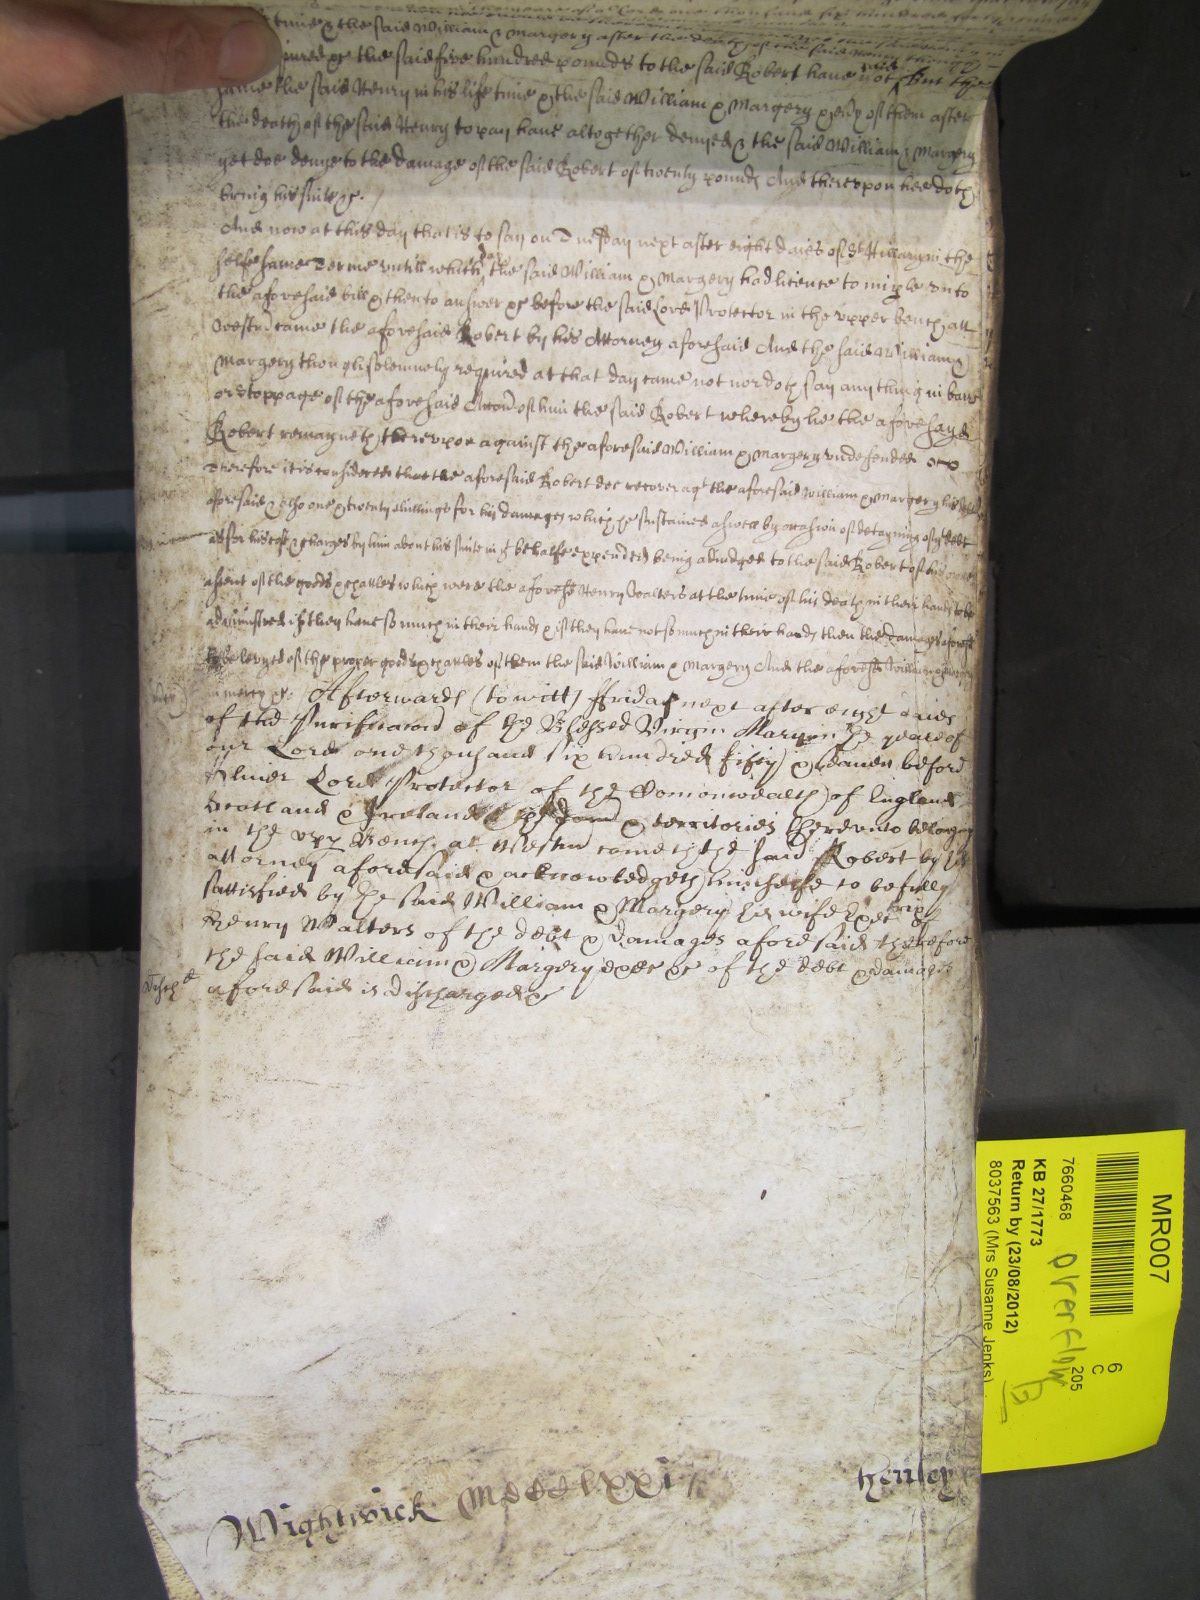 time & the said William & Margery after the death of the said Henry
required &c the said five hundred pounds to the said Robert have not paid but the
same the said Henry in his life time & the said William & Margery & eyther of them after
the death of the said Henry to pay have altogether denyed & the said William & Margery
yet doe denye to the damage of the said Robert of twenty pounds And thereupon hee doth
bring his suite &c.
And now at this day that is to say on Tuesday next after eight daies of St Hillary in the
selfe same Terme untill which day the said William & Margery had licence to imple unto
the aforesaid bill & then to answer &c before the said Lord Protector in the upper bench att
Westm came the aforesaid Robert by his Attorney aforesaid And the said William &
Margery though solemnely required at that day came not nor doth say any thing in barr
or stoppage of the aforesaid Accon of him the said Robert whereby he the aforesayd
Robert remayneth thereupon against the aforesaid William & Margery undefended &c
Therefore it is considered that the aforesaid Robert doe recover agt the aforesaid William & Margery his debt
aforesaid & also one & twenty shillings for his damages which he susteined aswell by occasion of detayning of yt debt
as for his costs & charges by him about his suite in yt behalfe expended being adiudged to the said Robert of his owne
assent of the goods & chattles which were the aforesd Henry Walters at the time of his death in their hands to be
administred if they have so much in their hands & if they have not so much in their hands then the damages aforesd
to be levyed of the proper goods & chattles of them the said William & Margery And the aforesd William & Margery
in mercy &c. Afterwards (to witt) ffriday next after eight daies
of the Purificacon of the Blessed Virgin Mary in the yeare of
our Lord one thousand six hundred fifty & seaven before
Oliver Lord Protector of the Comonwealth of England
Scotland & Ireland & the dom & territories thereunto belonging
in the uppr Bench at Westm cometh the said Robert by his
attorney aforesaid & acknowledgeth himselfe to be fully
sattisfied by the said William & Margery his wife Exectrix of
Henry Walters of the debt & damages aforesaid therefore
the said William & Margery exec &c of the debt & damages
aforesaid is discharged &c
Wightwick MCCCCLXXI Henley
MR007
6
C
205
7660468
overflow
KB 27/1773
Return by (23/08/2012)
8037563 (Mrs Susanne Jenks)